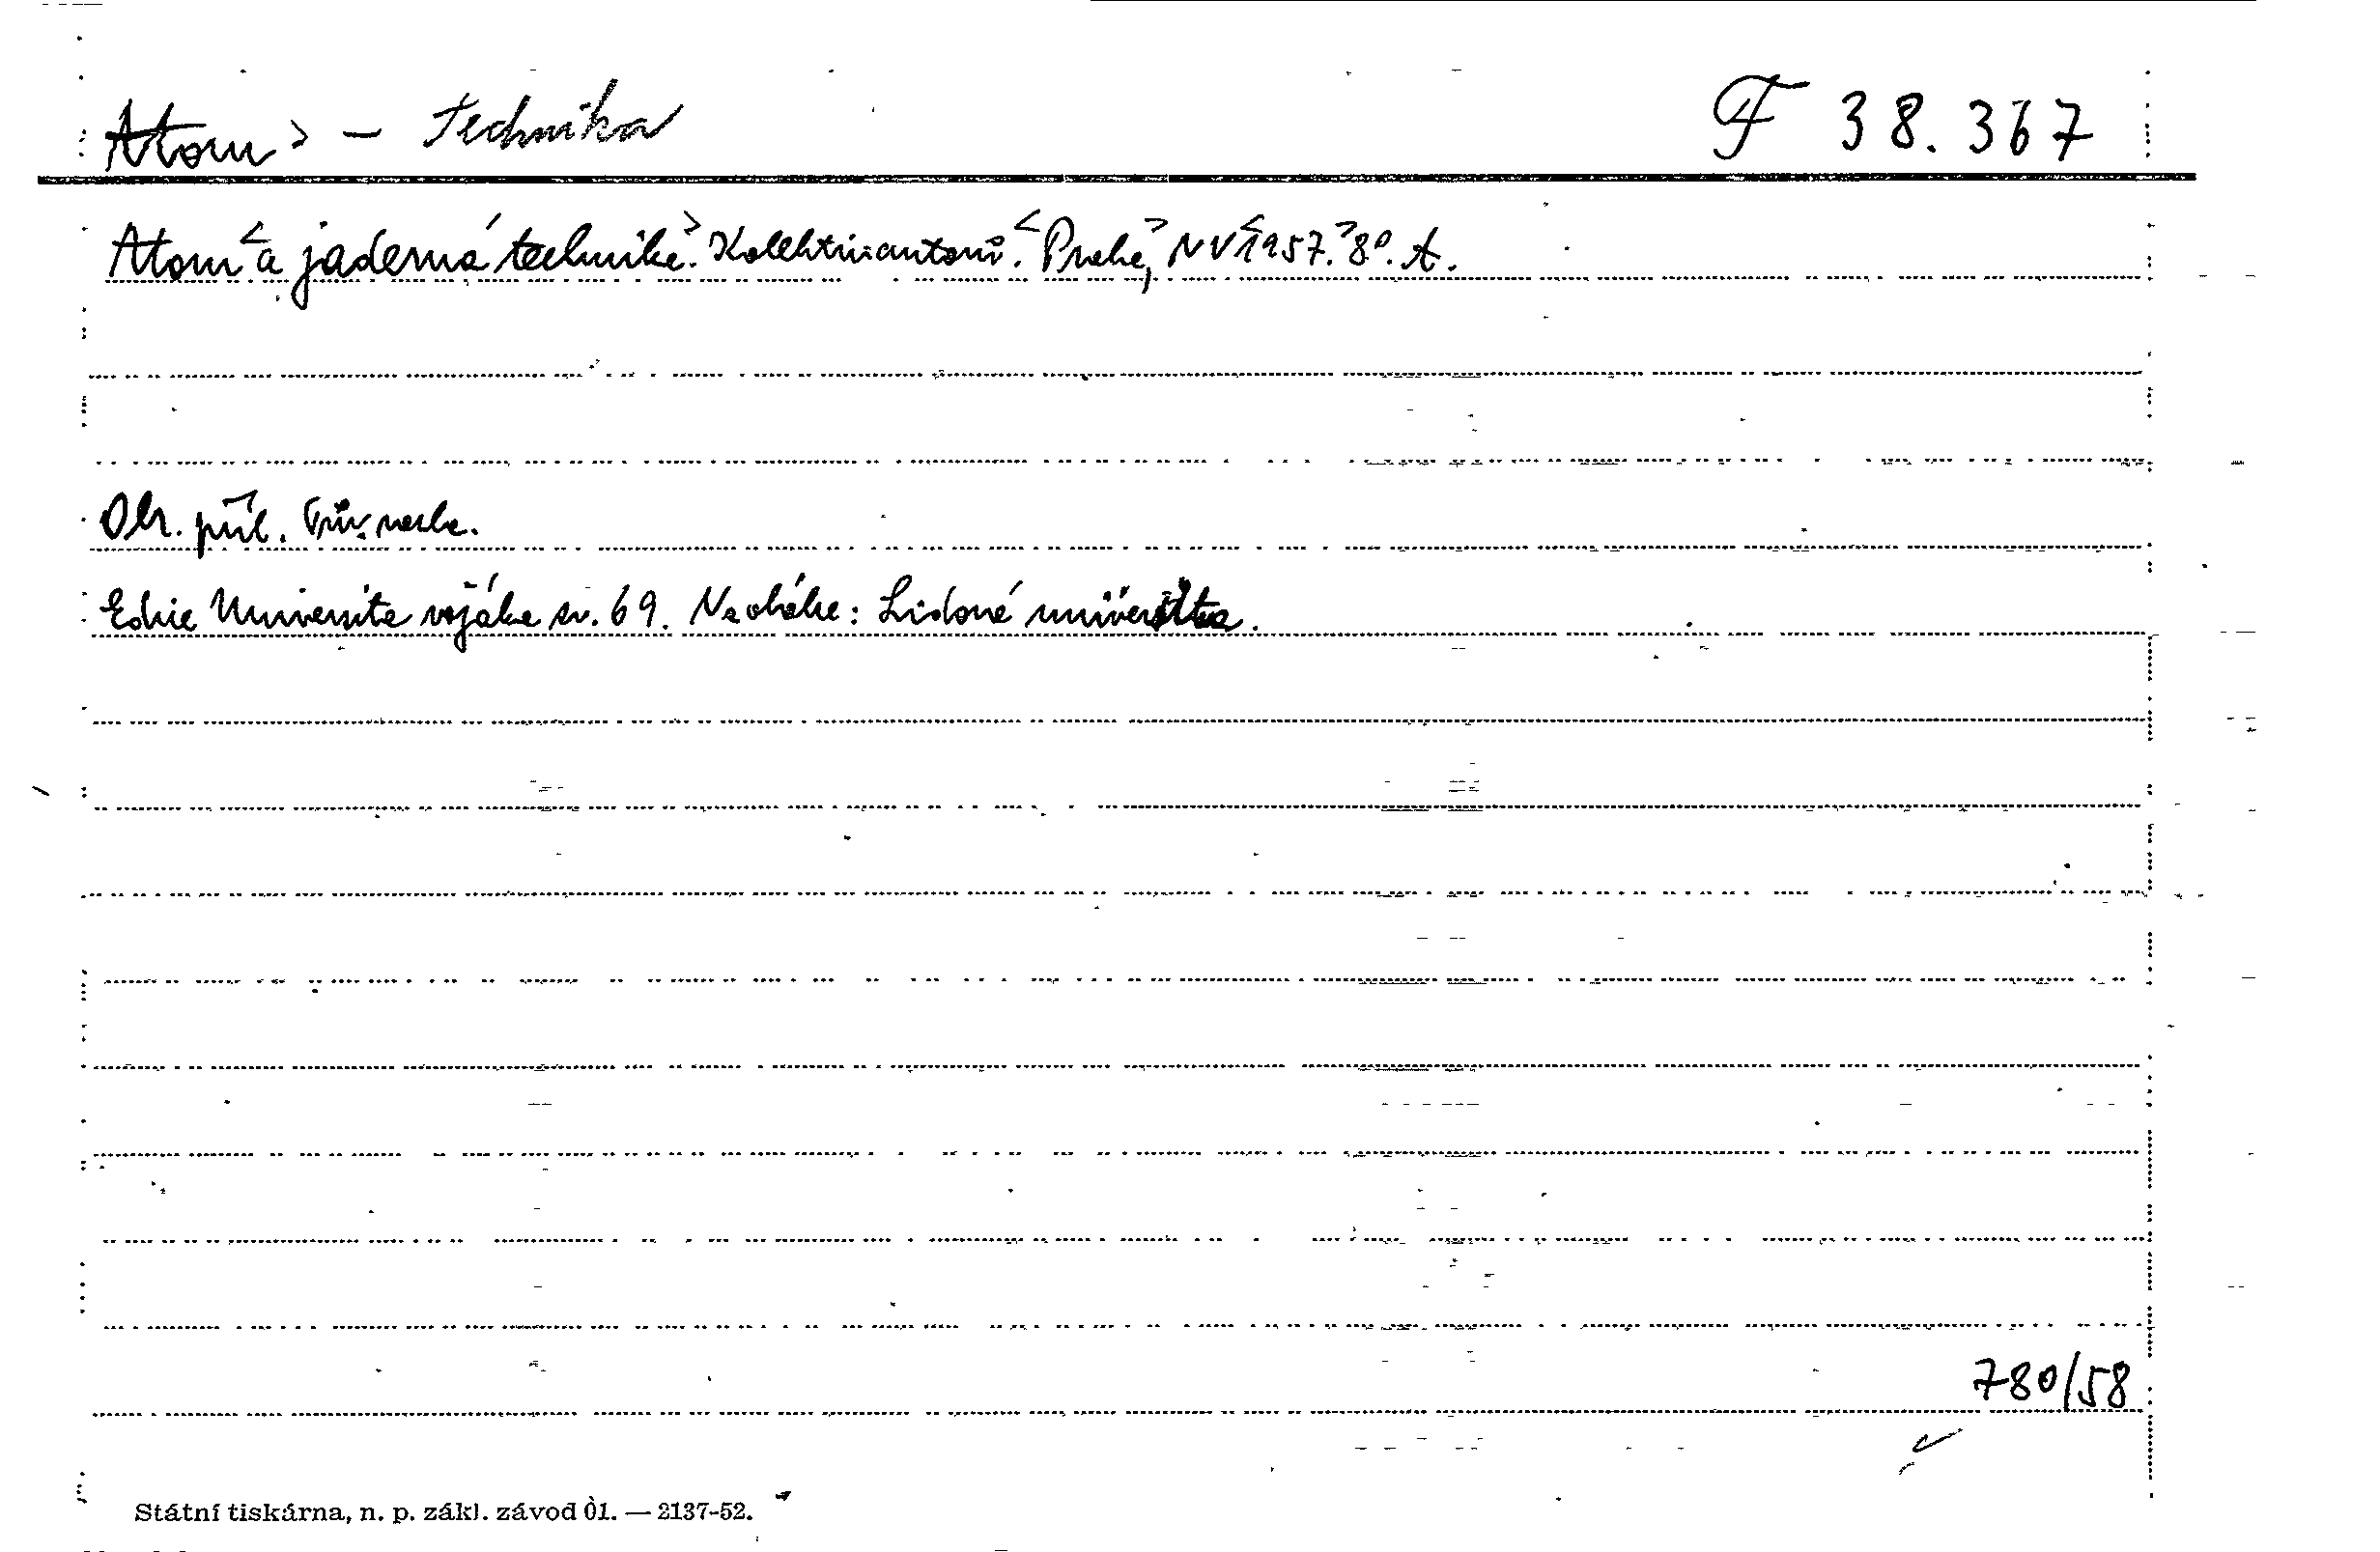 Atom > – Technika F 38.367
Atom < a jaderná technika. > Kolektiv autorů. < Praha, > NV < 1957. > 8°. A.
Obr. příl. Prův. nezn.
Edice Universita vojáka sv. 69. Na obálce: Lidová universita.
780/58
Státní tiskárna, n. p. zákl. závod 01. — 2137-52.